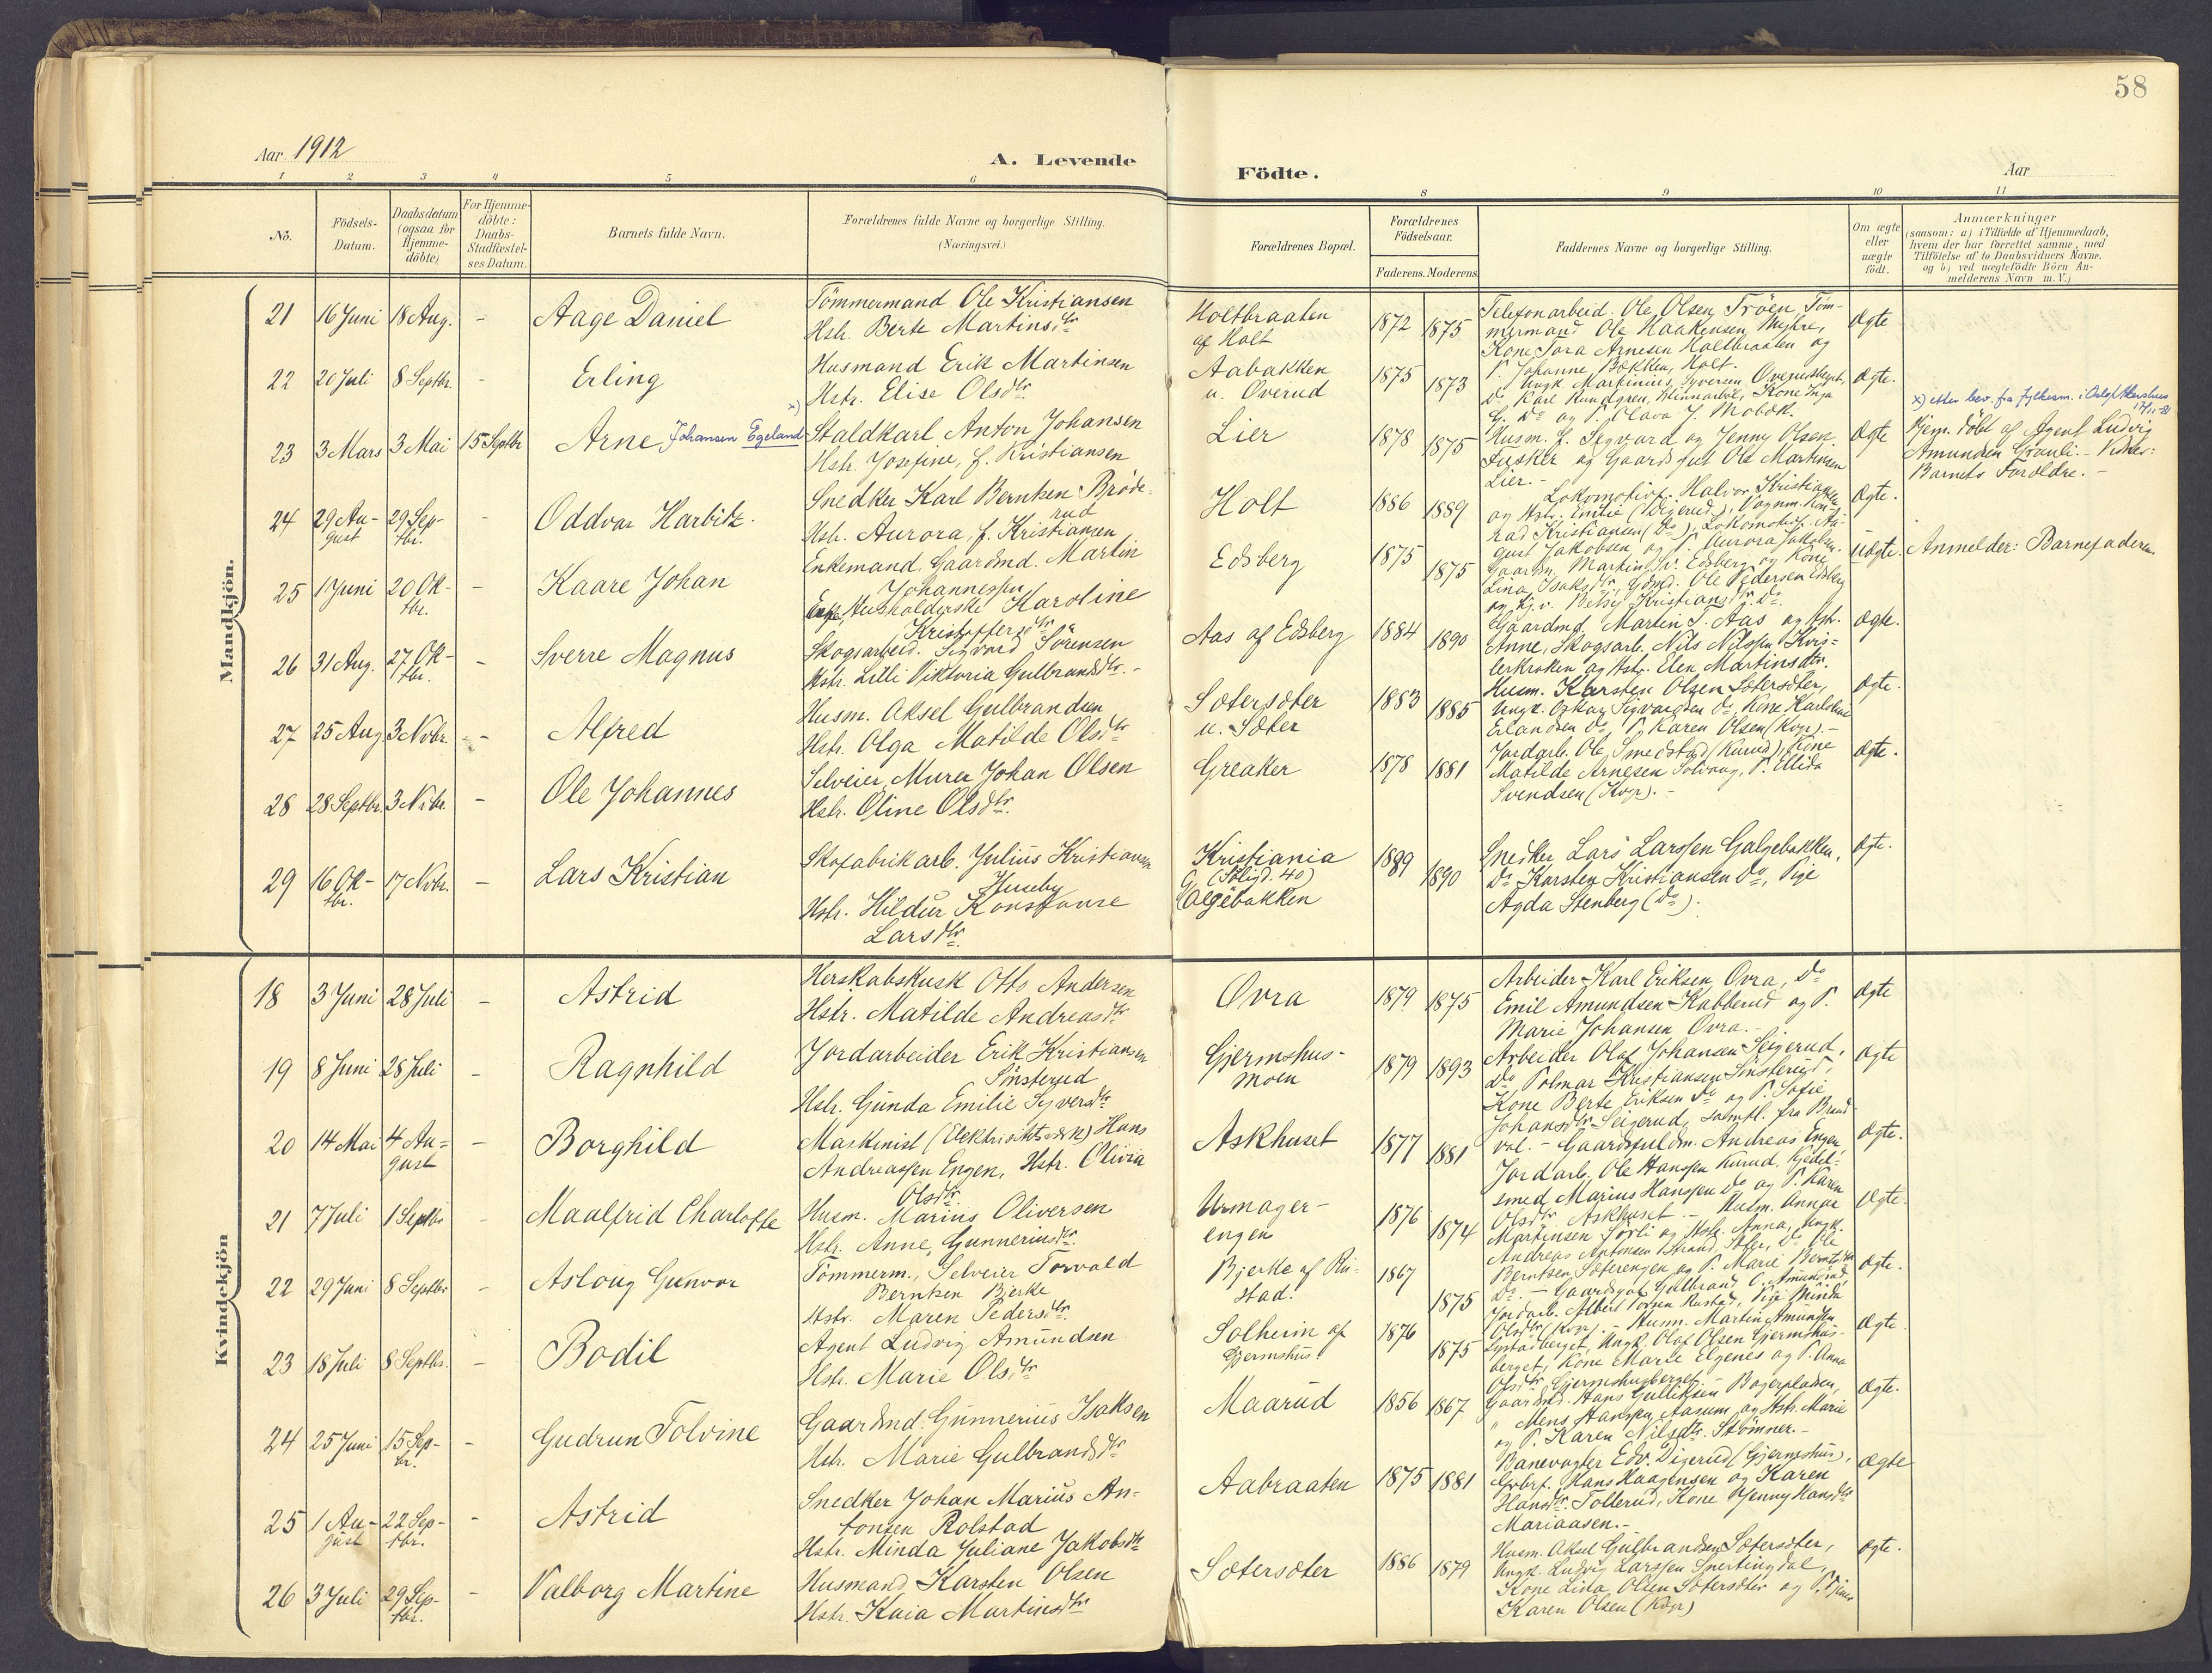 58
Aar 1912
A. Levende Födte.
Aar
1 2 3 4 5 6 8 9 10 11
No.
Födsels-Datum.
Daabsdatum (ogsaa for Hjemme-döbte)
For Hjemme-döbte: Daabs-Stadfæstel-ses Datum.
Barnets fulde Navn.
Forældrenes fulde Navne og borgerlige Stilling.
(Næringsvei.)
Forældrenes Bopæl.
Forældrenes Födselsaar.
Faderens. Moderens
Faddernes Navne og borgerlige Stilling.
Om ægte eller uægte födt.
Anmærkninger
(saasom: a) i Tilfælde af Hjemmedaab,
hvem der har forrettet samme, med
Tilföielse af to Daabsvidners Navne.
og b) ved uægtefödte Börn An-
melderens Navn m. V.)
Mandkjön.
21 16 Juni 18 Aug. - Aage Daniel
Tömmermand Ole Kristiansen
Hstr. Berte Martinsdtr
Holtbraaten
af Holt
1872 1875
Telefonarbeid. Ole Olsen Tröen, Töm-
mermand Ole Haakensen Myhre,
Kone Tora Arnesen Holtbraaten og
P. Johanne Bakken, Holt.
Ægte
22 20 Juli 8 Septbr. - Erling
Husmand Erik Martinsen
Hstr. Elise Olsdtr
Aabakken
u. Överud
1875 1873
Ungk. Martinius Syversen
Do Karl Rundgren, Kone Inga
Ægte.
23 3 Mars 3 Mai 15 Septbr Arne Johansen Egeland x)
Staldkarl Anton Johansen
Hstr. Josefine, f. Kristiansen
Lier
1878 1875
Husm. f. Sigvard og Jenny Olsen
og Gaardsfut Ole Martinsen
Lier. -
Ægte
Hjem. döbt af Agent Ludvig
Amundsen Grauli. -
Barnets Forældre. -
24 29 Au-gust 29 Sep-tbr. - Oddvar Harbitz.
Snedker Karl Berntsen Bröde-
rud
Hstr. Aurora, f. Kristiansen
Holt
1886 1889
Lokomotivf. Halvor Kristiansen
og Hstr. Emilie (Digerud), Vognm. Kon-
rad Kristiansen (Do), Lokomotivf. Au-
gust Jakobsen og P. Aurora Jakobsen.
Ægte.
25 1 Juni 20 Ok-tbr. - Kaare Johan
Enkemand, Gaardmd. Martin
Johannessen
Husholderske Karoline
Kristoffersdtr
Edsberg
1875 1875
Gaardm. Martin Edsberg og Kone
Lina Isaksdtr, Gdmd. Ole Pedersen Edsberg
Uægte. Anmelder: Barnefaderen
26 31 Aug. 27 Ok-tbr. - Sverre Magnus
Skogsarbeid. Sigvard Sörensen
Hstr. Lilli Viktoria Gulbrandsdtr. -
Aas af Edsberg 1884 1890
Gaardmd Martin S. Aas og Hstr.
Anne, Skogsarb. Nils Nilssen Kvis-
lerkroken og Hstr. Elen Martinsdtr.
Ægte.
27 25 Aug. 3 Novbr. - Alfred
Husm. Aksel Gulbrandsen
Hstr. Olga Matilde Olsdtr
Sætersæter
u. Sæter
1883 1885
Husm. Karsten Olsen Sætersæter,
Ungk. Oskar Sigvardsen Do, Kone Karoline
Erlandsen Do, P. Karen Olsen (Kvgr). -
Ægte.
28 28 Septbr. 3 Nvbr. - Ole Johannes
Selveier, Murer Johan Olsen
Hstr. Oline Olsdtr.
Greaker
1878 1881
Jordarb. Ole Smedstad (Kurud), Kone
Matilde Arnesen Solvang, P. Ellida
Svendsen (Kvgr). -
Ægte.
29 16 Ok-tbr. 17 Nvbr. - Lars Kristian
Skofabrikarb. Julius Kristiansen
Huseby
Hstr. Hildur Konstanse
Larsdtr.
Kristiania
Galgebakken
1889 1890
Snedker Lars Larssen Galgebakken,
Do Karsten Kristiansen Do, Pige
Agda Stenberg (Do).
Ægte.
Kvindekjön
18 3 Juni 28 Juli - Astrid
Herskabskusk Otto Andersen
Hstr. Matilde Andreasdtr
Ovra
1879 1875
Arbeider Karl Eriksen Ovra, Do
Emil Amundsen Kabberud og P.
Marie Johansen Ovra. -
Ægte
19 8 Juni 28 Juli - Ragnhild
Jordarbeider Erik Kristiansen
Sönsterud
Hstr. Gunda Emilie Syversdtr
Gjermshus-
moen
1879 1893
Arbeider Olaf Johansen Seigerud,
Do Polmar Kristiansen Sönsterud,
Kone Berte Eriksen Do og P. Sofie
Johansdtr Seigerud,
Ægte
20 14 Mai 4 Au-gust - Borghild
Maskinist (Elektrisitetsverk) Hans
Andreassen Engen, Hstr. Olivia
Olsdtr.
Askhuset
1877 1881
Gaardsfuldm. Andreas Engen
Jordarb. Ole Hanssen Kurud, Kjedel-
smed Marius Hanssen Do og P. Karen
Olsdtr Askhuset. -
Ægte.
21 7 Juli 1 Septbr - Maalfrid Charlotte
Husm. Marius Oliversen
Hstr. Anne Gunneriusdtr.
Urmager-
engen
1876 1874
Husm. Annar
Martinsen Sörli og Hstr. Anna, Ungk.
Andreas Antonsen Strand Sæter, Do Ole
Berntsen Sæterengen og P. Marie Berntsdtr
Ægte.
22 29 Juni 8 Septbr - Aslaug Gunvor
Tömmerm., Selveier Torvald
Berntsen Bjerke
Hstr. Maren Pedersdtr.
Bjerke af Ru-
stad.
1867 1875
Jordarb. Albert Rustad, Pige Minda
Olsdtr (Kvgr). -
Ægte.
23 18 Juli 8 Septbr. - Bodil
Agent Ludvig Amundsen
Hstr. Marie Olsdtr
Solheim af
Gjermshus.
1876 1875
Husm. Martin Amundsen
Ungk. Olaf Olsen Gjermshus-
berget, Kone Marie Elgenes og P. Anna
Olsdtr Gjermshusberget. -
Ægte.
24 25 Juni 15 Sep-br. - Gudrun Tolvine
Gaardmd. Gunnerius Isaksen
Hstr. Marie Gulbrandsdtr
Maarud
1856 1867
Gaardmd. Hans Gulliksen Bagerpladsen,
" Mons Hanssen Aasum og Hstr. Marie
og P. Karen Nilsdtr. Strömner. -
Ægte.
25 1 Au-gust 22 Sep-tbr. - Astrid
Snedker Johan Marius An-
tonsen Rolstad
Hstr. Minda Juliane Jakobsdtr
Aabraaten 1875 1881
Banevogter Edv. Digerud (Gjermshus),
Hans Haagensen og Karen
Hansdtr. Tollerud, Kone Jenny Hansdtr
Mariaasen. -
Ægte
26 3 Juli 29 Sep-tbr. - Valborg Martine
Husmand Karsten Olsen
Hstr. Kaia Martinsdtr
Sætersæter
1886 1879
Husm. Aksel Gulbrandsen Sætersæter,
Ungk. Ludvig Larssen Snertingdal,
Kone Lina Olsen Sætersæter og P.
Karen Olsen (Kvgr)
Ægte.